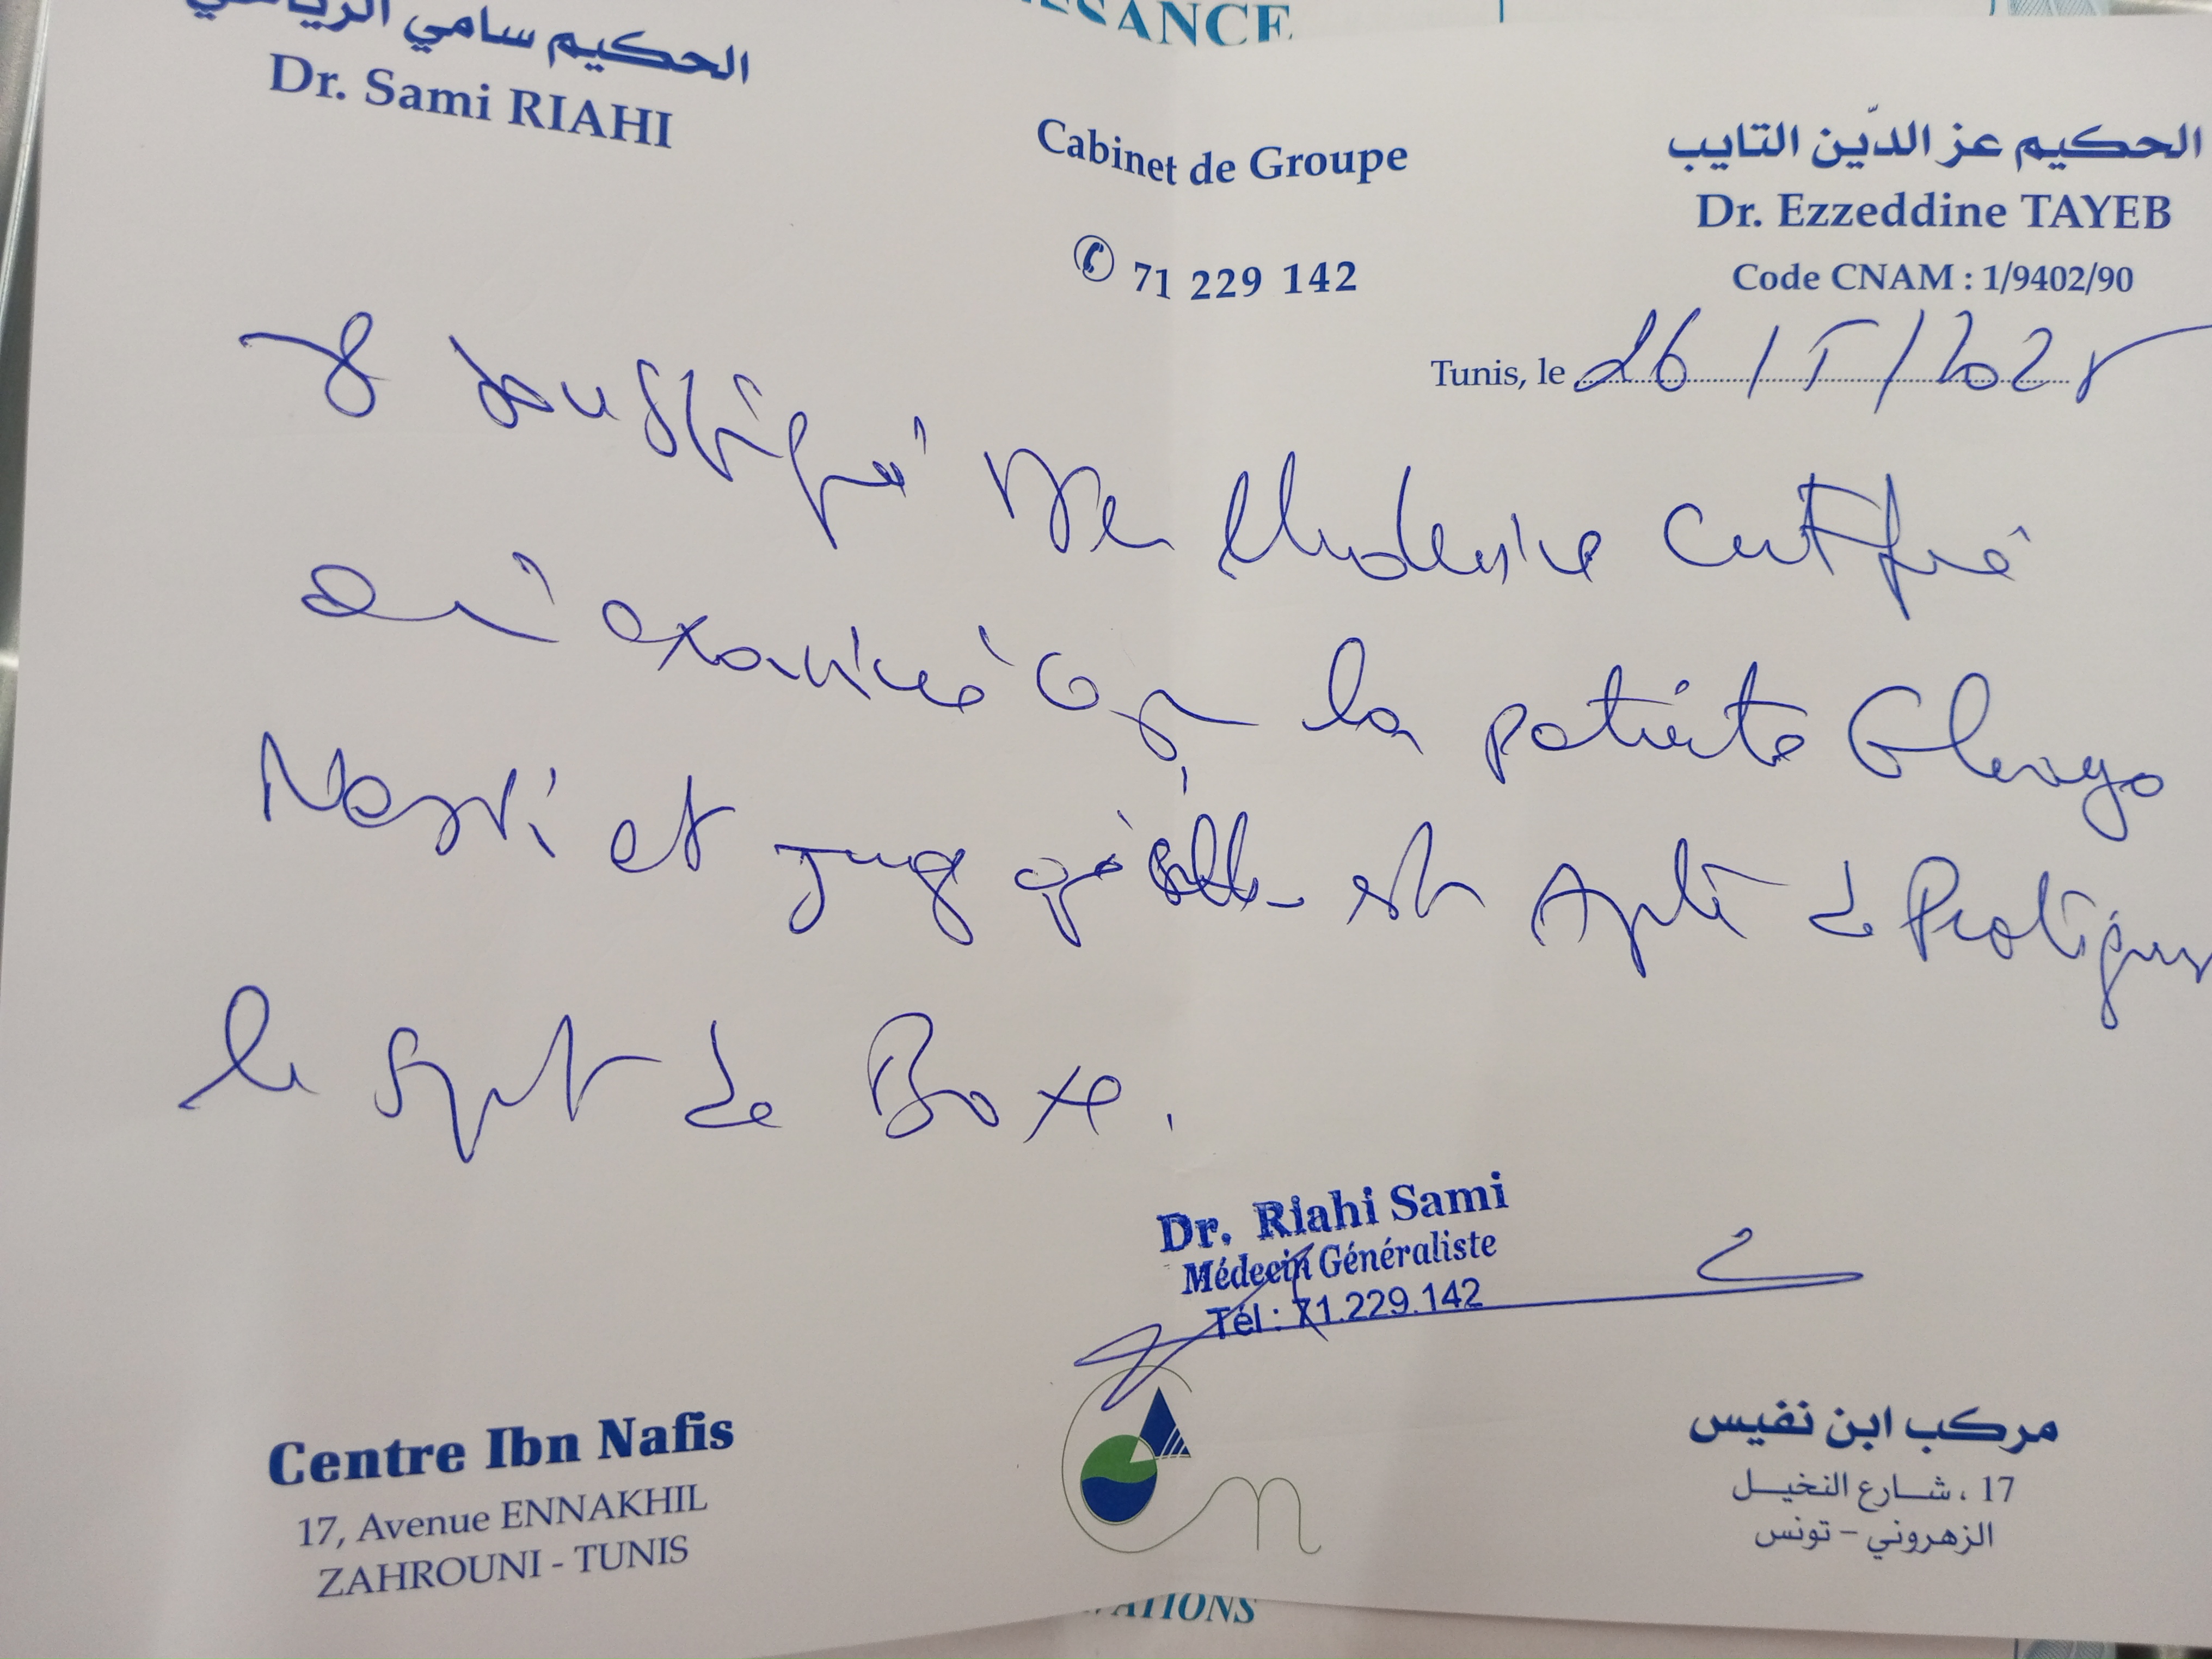 SSANCE
الحكيم سامي الرياحي
Dr. Sami RIAHI
Cabinet de Groupe
71 229 142
الحكيم عز الدّين التايب
Dr. Ezzeddine TAYEB
Code CNAM : 1/9402/90
Tunis, le 26 / 5 / 2025
Je soussigné certifie
avoir examiné ce jour la patiente
et juge qu'elle est Apte de Pratiquer
le sport de Boxe.
Dr. Riahi Sami
Médecin Généraliste
Tél : 71.229.142
Centre Ibn Nafis
17, Avenue ENNAKHIL
ZAHROUNI - TUNIS
مركب ابن نفيس
17 ، شارع النخيل
الزهروني - تونس
ATIONS